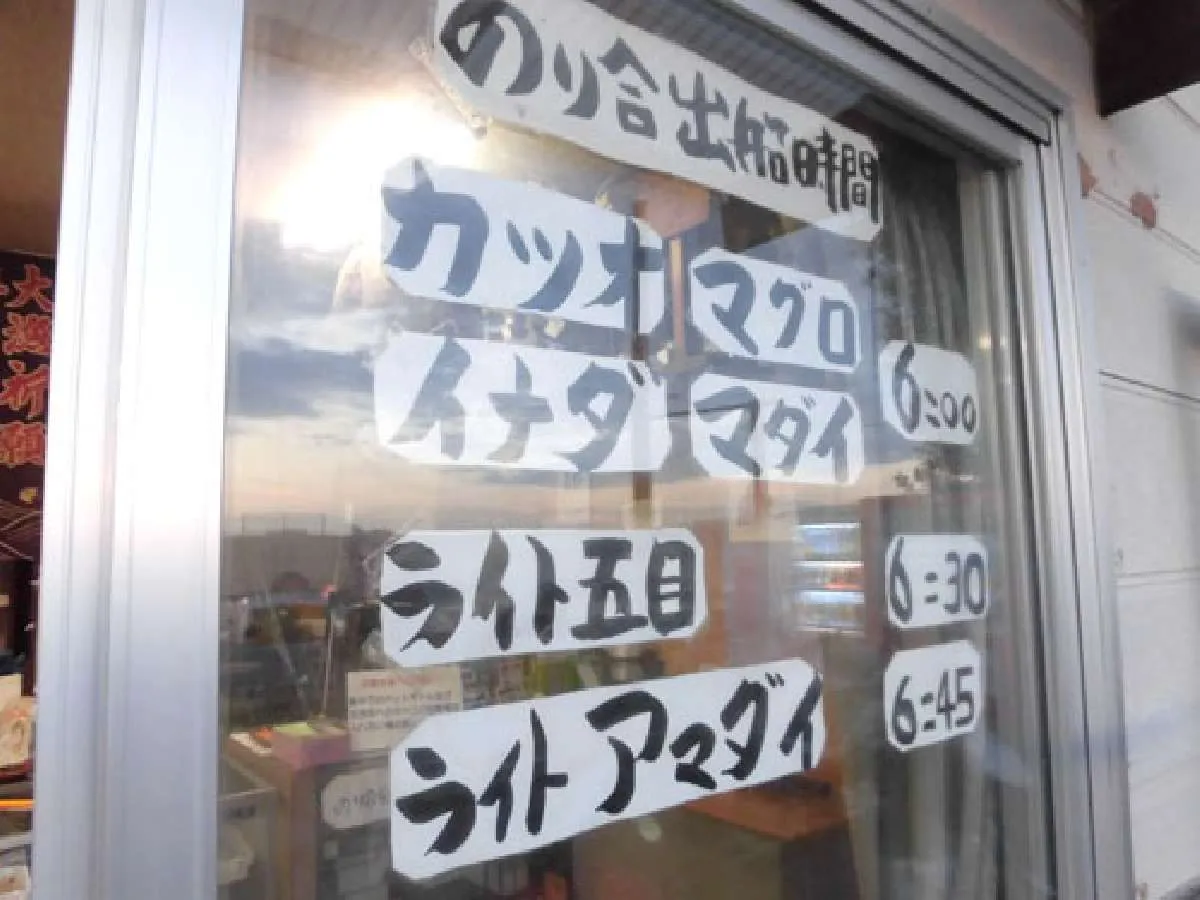 のり合出船時間
カツオ マグロ
イナダ マダイ 6:00
ライト五目 6:30
ライトアマダイ 6:45
大漁祈願